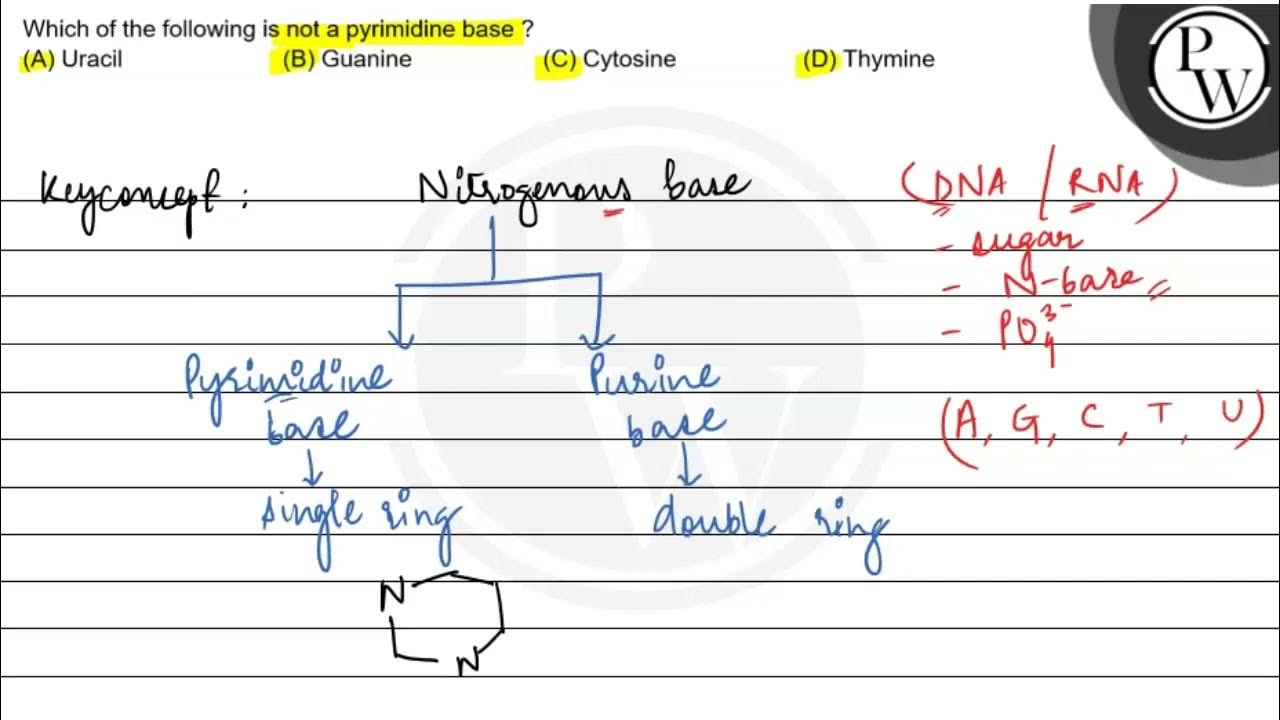 Which of the following is not a pyrimidine base ?
(A) Uracil (B) Guanine (C) Cytosine (D) Thymine
PW
Keyconcept :
Nitrogenous base
(DNA / RNA)
- sugar
- N-base
- PO₄³⁻
Pyrimidine base
Purine base
(A, G, C, T, U)
single ring
double ring
N
N